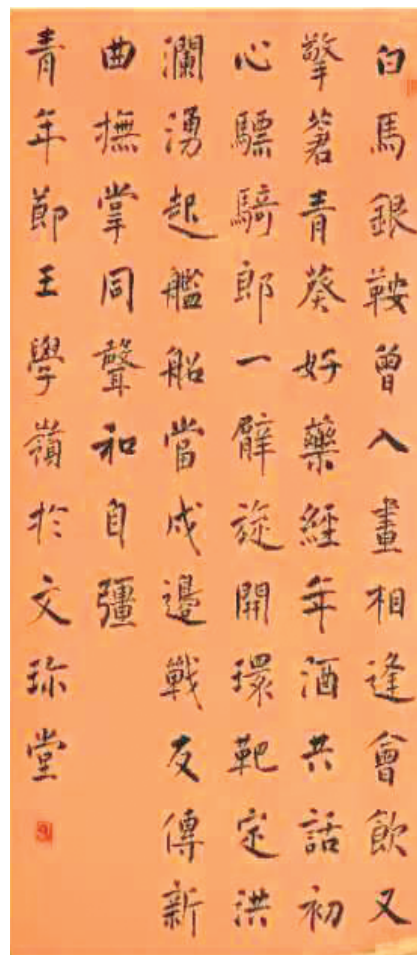 白馬銀鞍曾入畫相逢會飲又
擎箬青葵好藥經年酒共話初
心驃騎郎一臂旋開環靶定洪
瀾湧起艦船當戍邊戰友傳新
曲撫掌同聲和自彊
青年節王學嶺於文琮堂